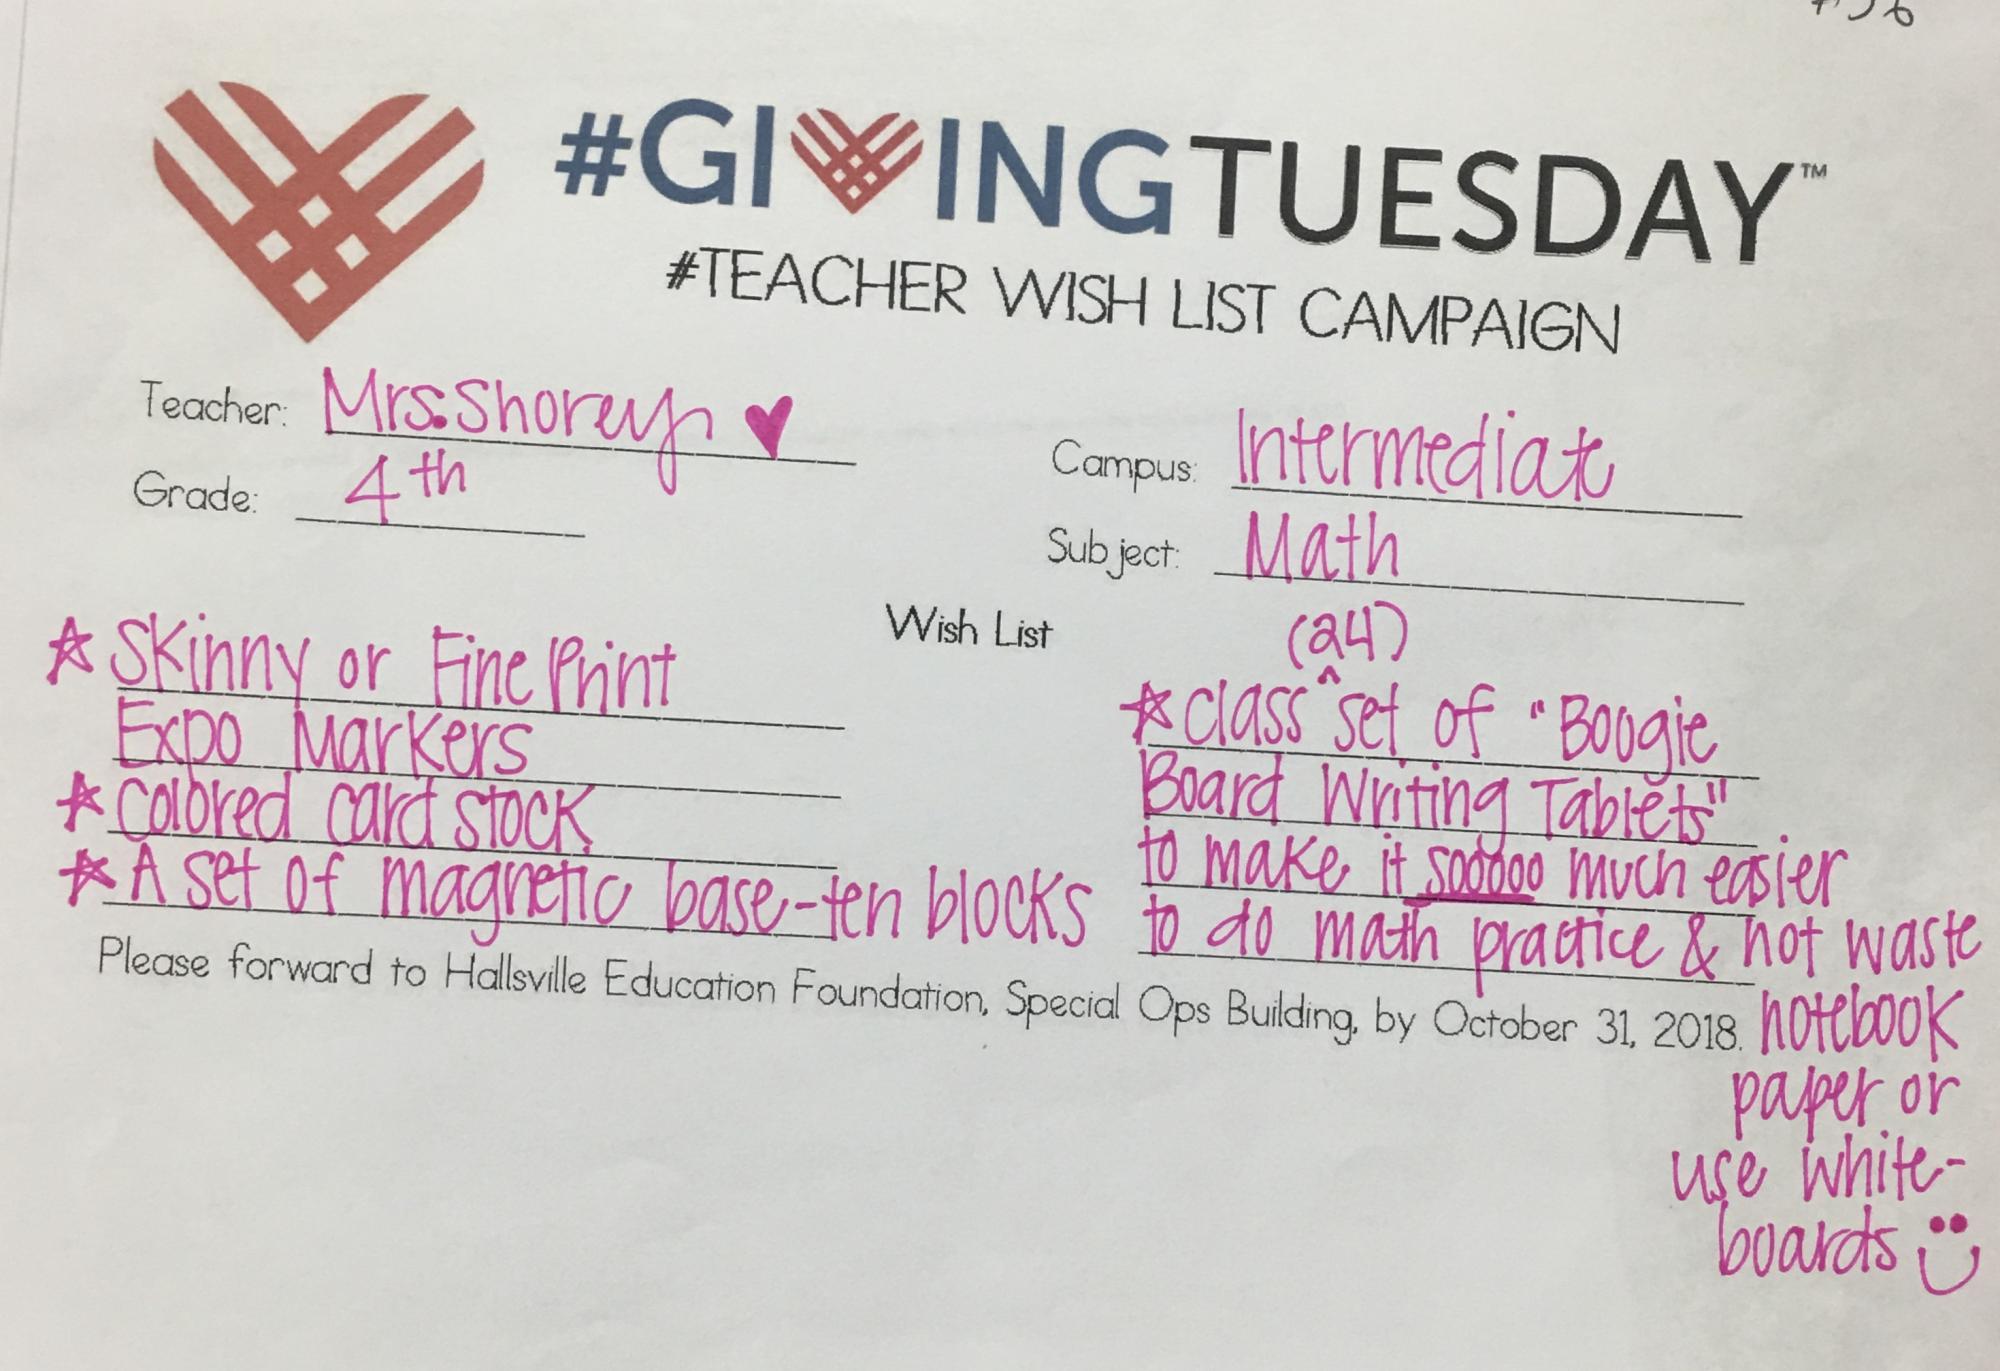 #GIVINGTUESDAY™
#TEACHER WISH LIST CAMPAIGN
Teacher: Mrs. Shorey
Campus: Intermediate
Grade: 4th
Subject: Math
Wish List
☆ Skinny or Fine Print
Expo Markers
☆ Colored card stock
☆ A set of magnetic base-ten blocks
(24)
☆ class ^ set of "Boogie
Board Writing Tablets"
to make it sooooo much easier
to do math practice & not waste
notebook
paper or
use white-
boards
Please forward to Hallsville Education Foundation, Special Ops Building, by October 31, 2018.